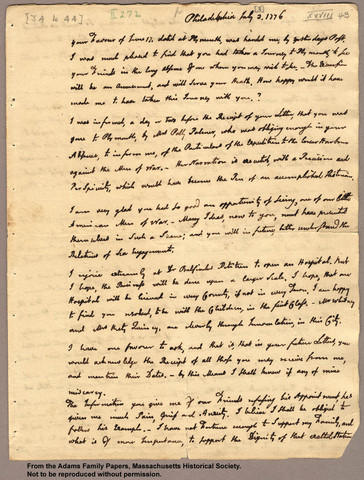 [JA to AA]
II 272
XXVIII 43
Philadelphia July 3, 1776
your Favour of June 17. dated at Plymouth, was handed me, by yesterdays Post.
I was much pleased to find that you had taken a Journey to Plymouth, to see
your Friends in the long Absence of one whom you may wish to see. The Excursion
will be an Amusement, and will serve your Health. How happy would it have
made me to have taken this Journey with you?
I was informed, a day or two before the Receipt of your Letter, that you was
gone to Plymouth, by Mrs. Polly Palmer, who was obliging enough in your
Absence, to inform me, of the Particulars of the Expedition to the lower Harbour
against the Men of War. Her Narration is executed, with a Precision and
Perspicuity, which would have become the Pen of an accomplished Historian.
I am very glad you had so good an opportunity of seeing one of our little
American Men of War. Many Ideas, new to you, must have presented
themselves in such a Scene; and you will in future, better understand the
Relations of Sea Engagements.
I rejoice extreamly at Dr. Bulfinches Petition to open an Hospital. But
I hope, the Business will be done upon a larger Scale. I hope, that one
Hospital will be licensed in every County, if not in every Town. I am happy
to find you resolved, to be with the Children, in the first Class. Mr. Whitney
and Mrs. Katy Quincy, are cleverly through Innoculation, in this City.
I have one favour to ask, and that is, that in your future Letters, you
would acknowledge the Receipt of all those you may receive from me,
and mention their Dates. By this Means I shall know if any of mine
miscarry.
The Information you give me of our Friends refusing his Appointment, has
given me much Pain, Grief and Anxiety. I believe I shall be obliged to
follow his Example. I have not Fortune enough to support my Family, and
what is of more Importance, to support the Dignity of that exalted Station.
From the Adams Family Papers, Massachusetts Historical Society.
Not to be reproduced without permission.